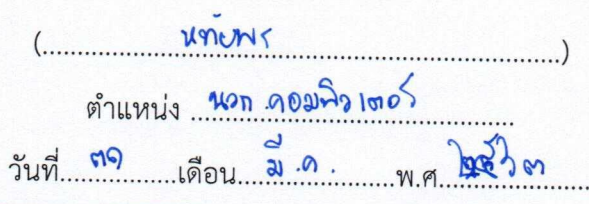 (...............หทัยพร...............)
ตำแหน่ง นวก.คอมพิวเตอร์
วันที่ ๓๑ เดือน มี.ค. พ.ศ. ๒๕๖๓